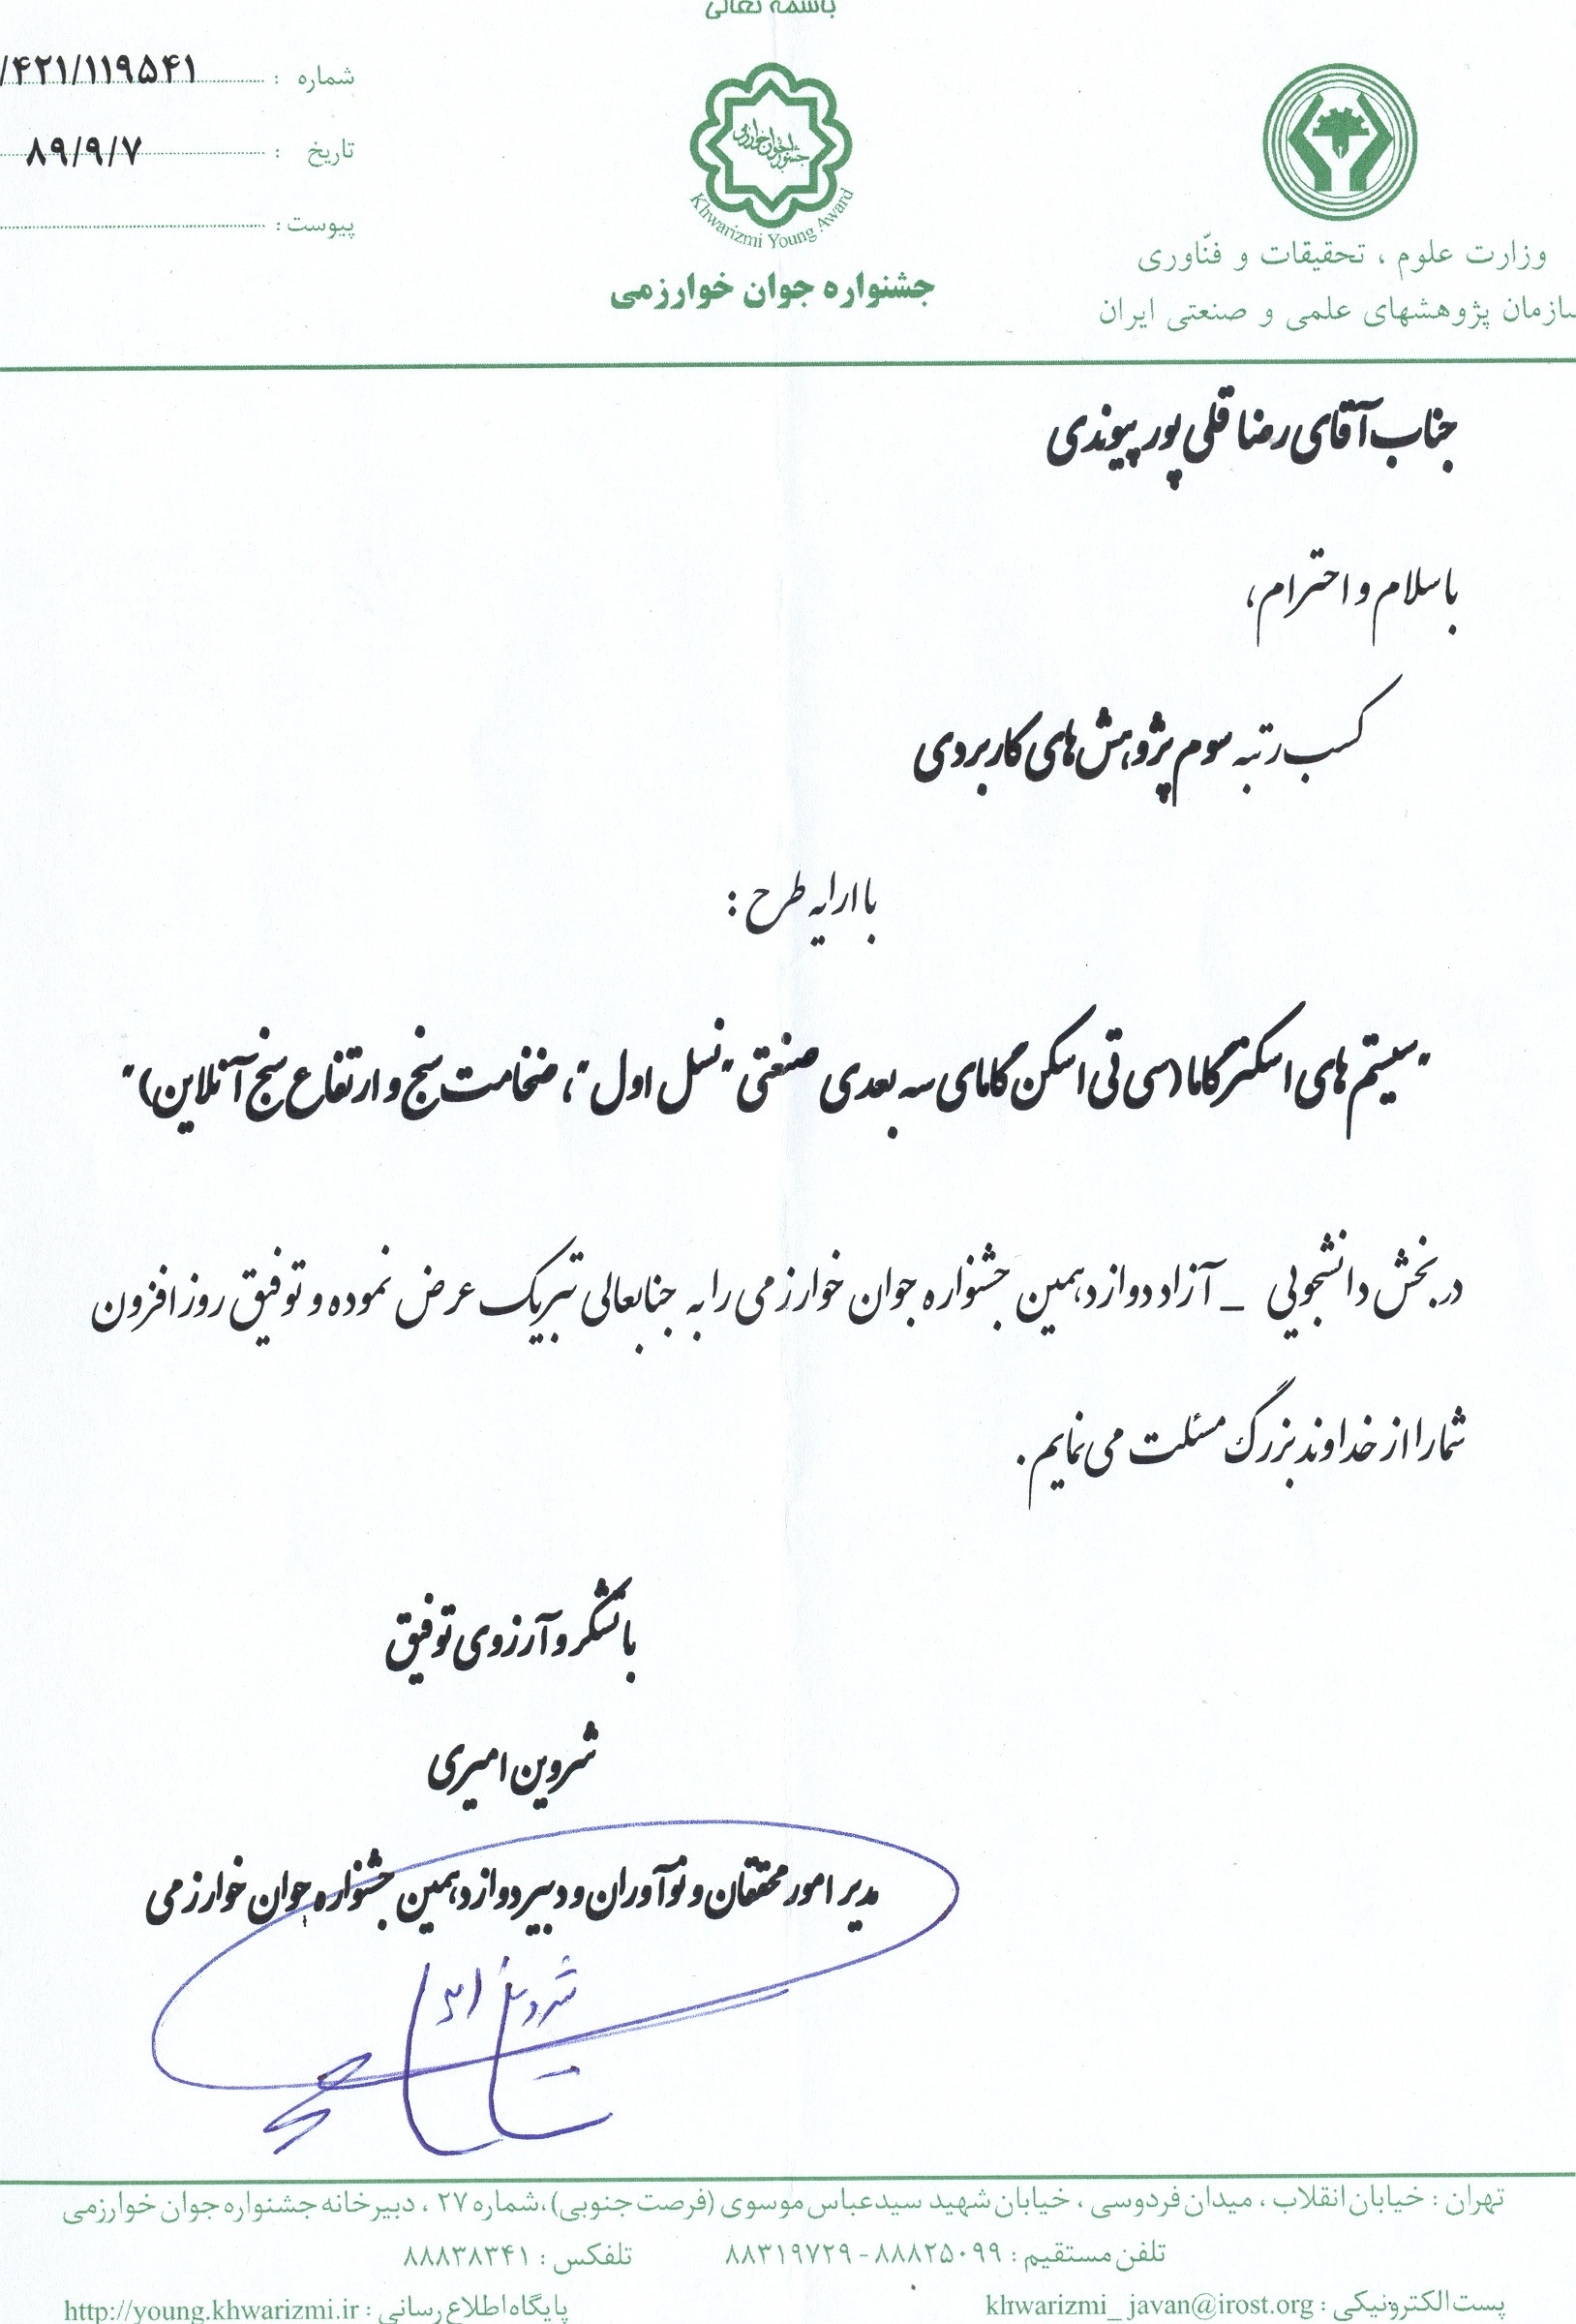 باسمه تعالی
شماره : /۴۲۱/۱۱۹۵۴۱
تاریخ : ۸۹/۹/۷
پیوست :
جشنواره جوان خوارزمی
Khwarizmi Young Award
جشنواره جوان خوارزمی
وزارت علوم ، تحقیقات و فنّاوری
سازمان پژوهشهای علمی و صنعتی ایران
جناب آقای رضا قلی پور پیوندی
با سلام و احترام،
کسب رتبه سوم پژوهش های کاربردی
با ارایه طرح :
"سیستم های اسکنر گاما (سی تی اسکن گامای سه بعدی صنعتی "نسل اول"، ضخامت سنج و ارتفاع سنج آنلاین)"
در بخش دانشجویی _ آزاد دوازدهمین جشنواره جوان خوارزمی را به جنابعالی تبریک عرض نموده و توفیق روز افزون
شما را از خداوند بزرگ مسئلت می نمایم.
با تشکر و آرزوی توفیق
شروین امیری
مدیر امور محققان و نوآوران و دبیر دوازدهمین جشنواره جوان خوارزمی
تهران : خیابان انقلاب ، میدان فردوسی ، خیابان شهید سیدعباس موسوی (فرصت جنوبی)،شماره ۲۷ ، دبیرخانه جشنواره جوان خوارزمی
تلفن مستقیم : ۸۸۸۲۵۰۹۹ - ۸۸۳۱۹۷۲۹ تلفکس : ۸۸۸۳۸۳۴۱
پست الکترونیکی : khwarizmi_javan@irost.org پایگاه اطلاع رسانی : http://young.khwarizmi.ir